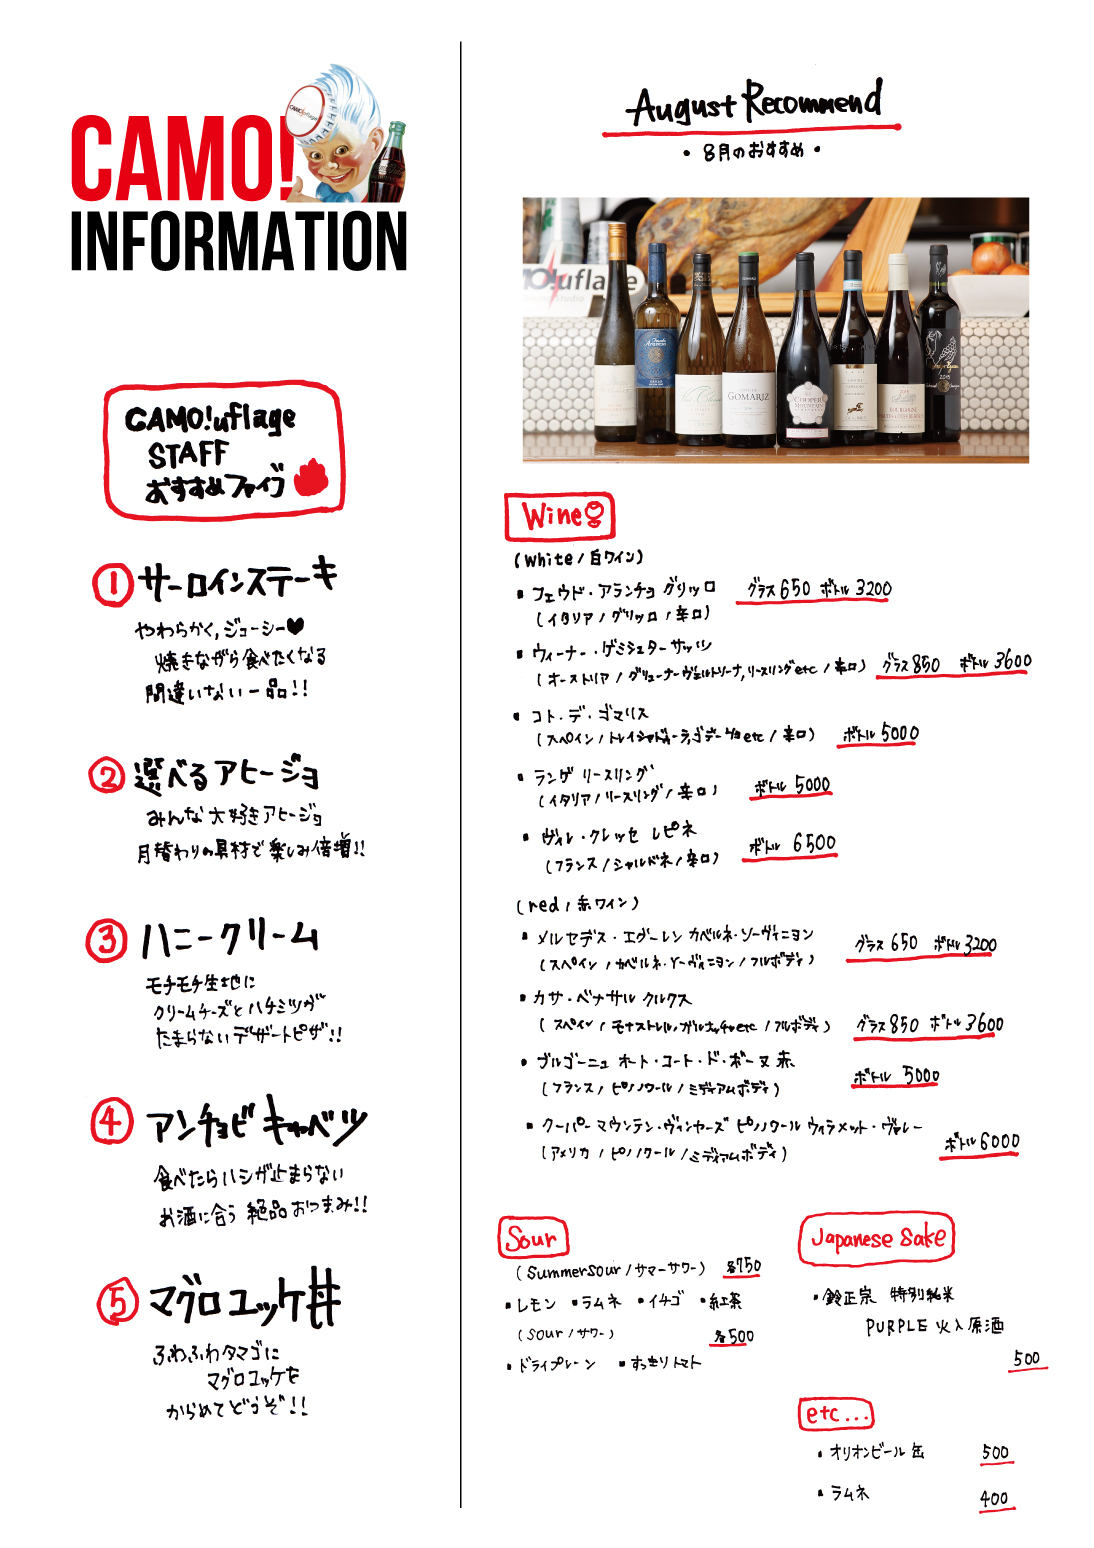 CAMO!
INFORMATION
CAMO!uflage
STAFF
おすすめファイブ
① サーロインステーキ
やわらかく,ジューシー♥
焼きながら食べたくなる
間違いない一品!!
② 選べるアヒージョ
みんな大好きアヒージョ
月替わりの具材で楽しみ倍増!!
③ ハニークリーム
モチモチ生地に
クリームチーズとハチミツが
たまらないデザートピザ!!
④ アンチョビキャベツ
食べたらハシが止まらない
お酒に合う絶品おつまみ!!
⑤ マグロユッケ丼
ふわふわタマゴに
マグロユッケを
からめてどうぞ!!
August Recommend
・8月のおすすめ・
O!uflage
GOMARIZ
COOPER
MOUNTAIN
Wine
(white/白ワイン)
・フェウド・アランチョ グリッロ グラス650 ボトル3200
(イタリア/グリッロ/辛口)
・ウィーナー・ゲミシュターサッツ
(オーストリア/グリューナーヴェルトリーナ,リースリングetc/辛口) グラス850 ボトル3600
・コト・デ・ゴマリス
(スペイン/トレイシャドゥーラ,ゴデーリョetc/辛口) ボトル5000
・ランゲ リースリング
(イタリア/リースリング/辛口) ボトル5000
・ヴィレ・クレッセ レピネ
(フランス/シャルドネ/辛口) ボトル6500
(red/赤ワイン)
・メルセデス・エグーレン カベルネ・ソーヴィニヨン
(スペイン/カベルネ・ソーヴィニヨン/フルボディ) グラス650 ボトル3200
・カサ・ベナサル クルクス
(スペイン/モナストレル,ガルナッチャetc/フルボディ) グラス850 ボトル3600
・ブルゴーニュ オート・コート・ド・ボーヌ 赤
(フランス/ピノノワール/ミディアムボディ) ボトル5000
・クーパーマウンテン・ヴィンヤーズ ピノノワール ウィラメット・ヴァレー
(アメリカ/ピノノワール/ミディアムボディ) ボトル6000
Sour
(Summer sour/サマーサワー) 各750
・レモン ・ラムネ ・イチゴ ・紅茶
(sour/サワー) 各500
・ドライプレーン ・すっきりトマト
Japanese Sake
・鈴正宗 特別純米
PURPLE 火入原酒
500
etc...
・オリオンビール缶 500
・ラムネ 400